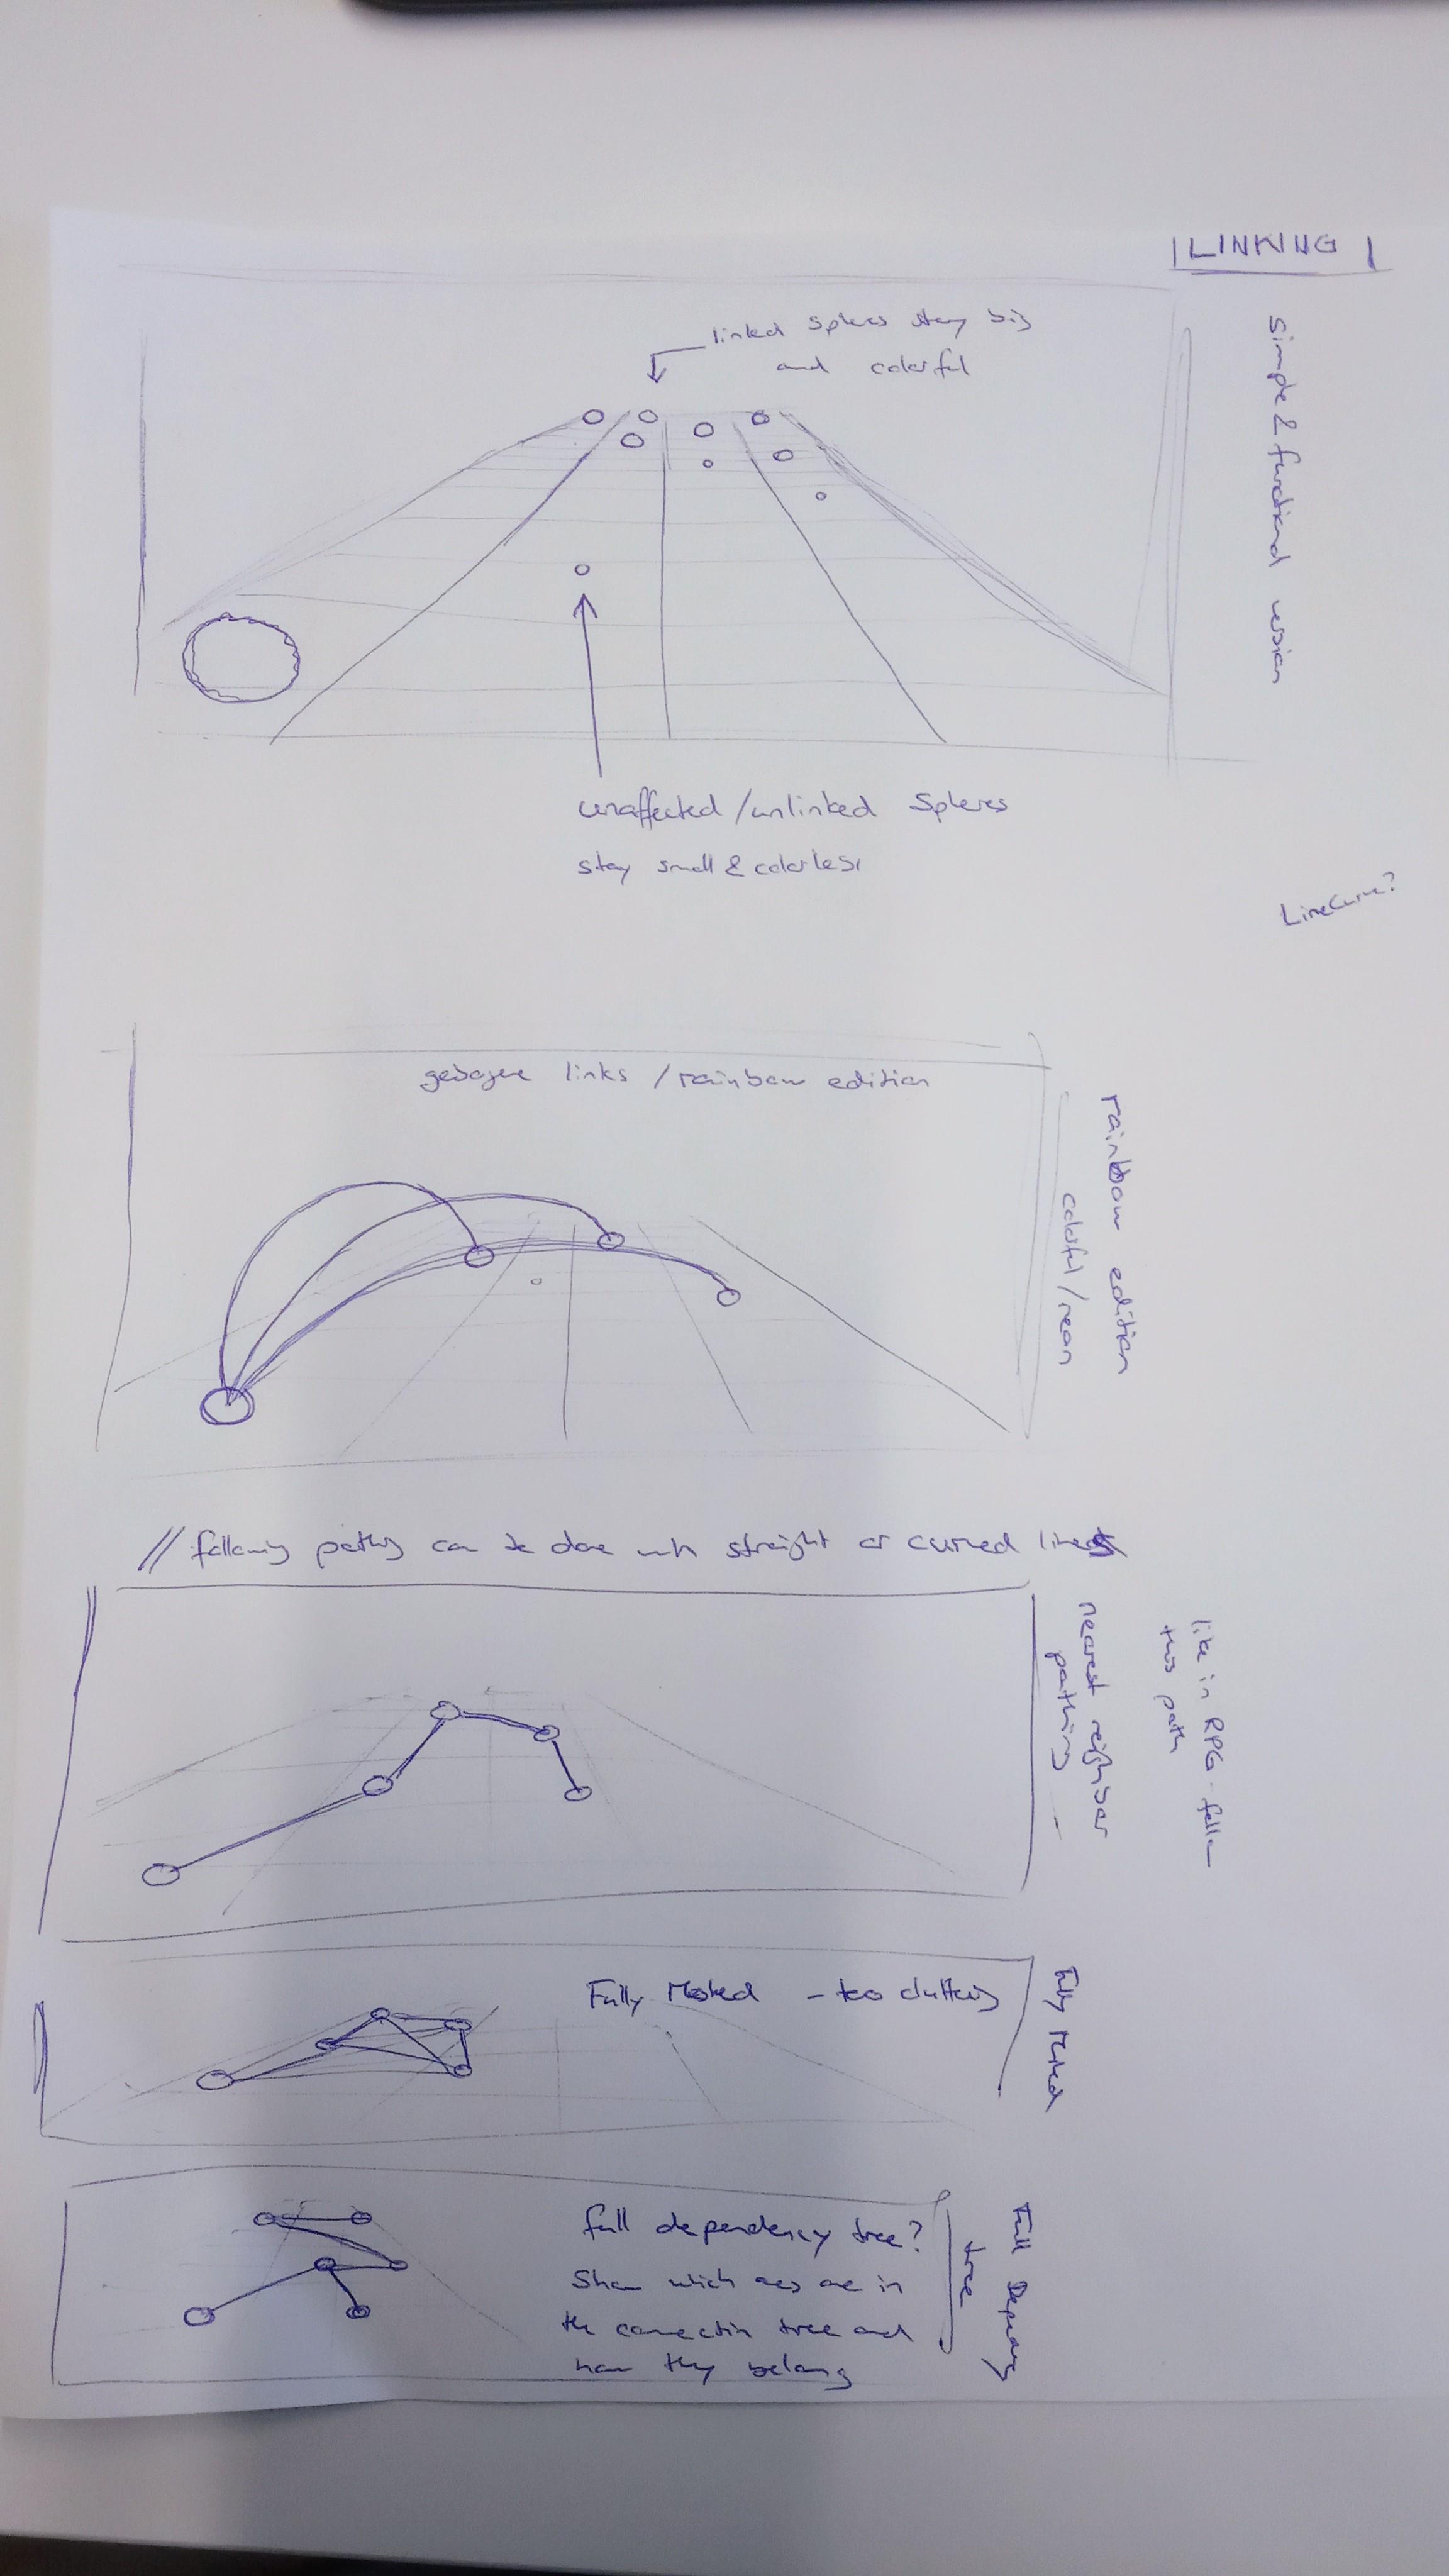 LINKING
linked Spheres stay big
and colorful
simple & functional version
unaffected/unlinked Spheres
stay small & colorless
LineCurve?
gebogene links / rainbow edition
rainbow edition
colorful/neon
// following paths can be done with straight or curved lines
nearest neighbor
pathing
like in RPG - follow
this path
Fully Meshed - too cluttery
Fully Meshed
full dependency tree?
Show which are in
the connection tree and
how they belong
Full Dependency
tree